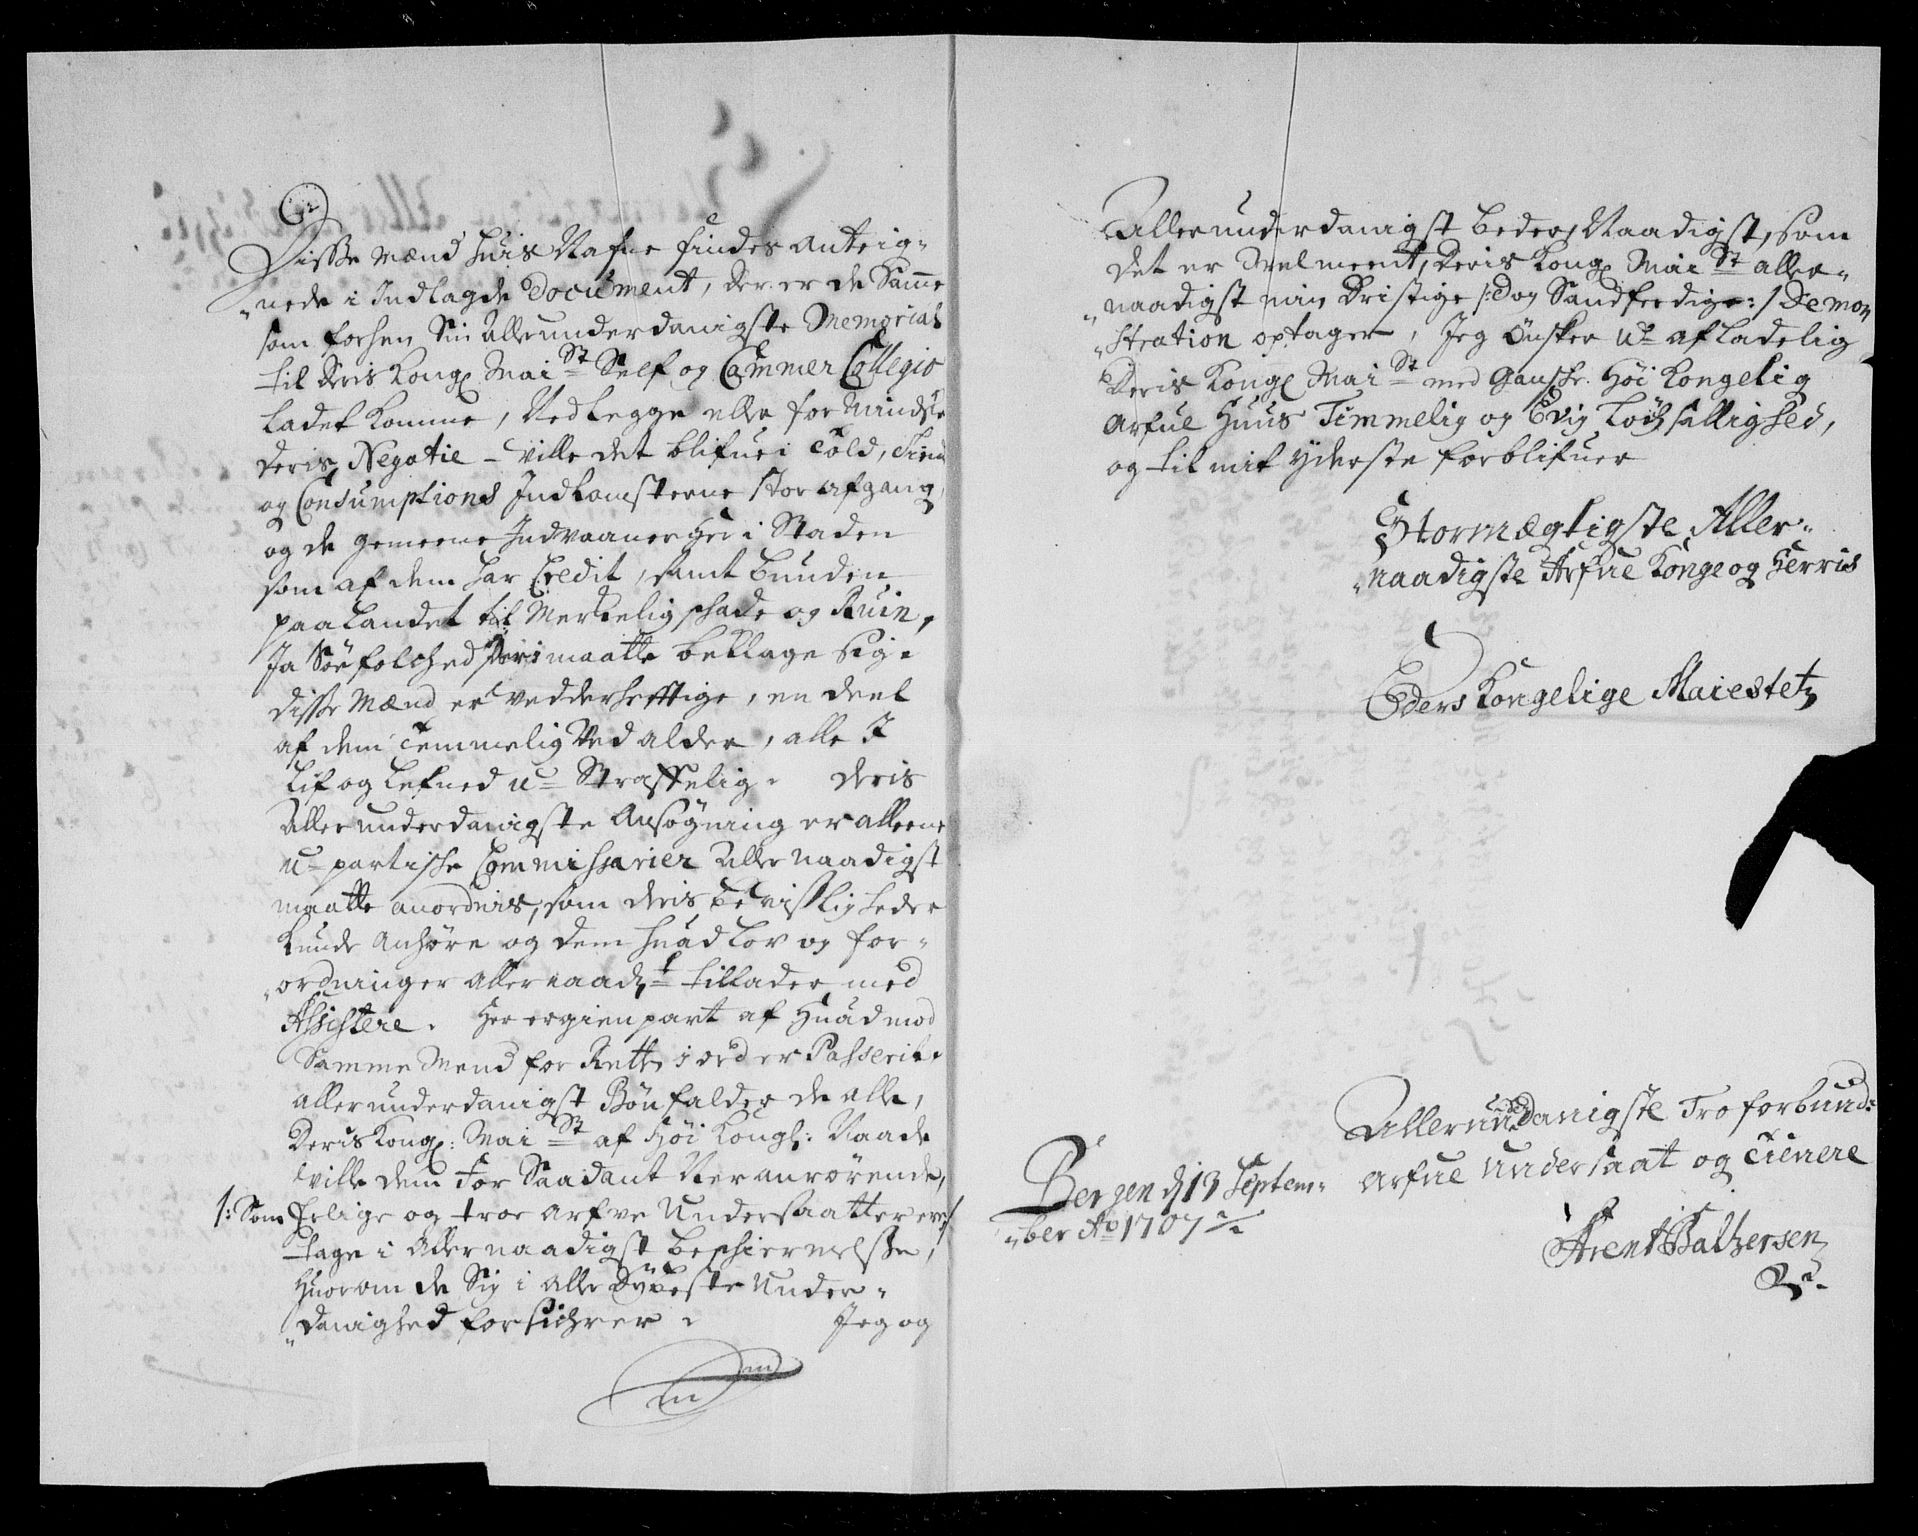 Disse Mænd huis Nafne findes anteig-
"nede i Indlagde Document, der er de Samme
som forhen Sin allerunderdanigste Memorial
til Deris Kong Mai St Self og Cammer Collegio
ladet komme, Ved legge elle formindske
deris Negotie - ville det blifue i Told,
og Consumptions Indkomsterne stor afgang,
og de gemeene Indvaaner her i Staden
som af dem har Credit, samt bunden
paa Landet til Merkelig schade og Ruin,
Ja Söefolched maatte beklage sig.
disse Mænd er Vedderhefftige, en deel
af dem temmelig Ved alder, alle I
Lif og Lefned u- Straffelig. deris
Allerunderdanigste Ansøgning er alleene
u- partische Commissarier Allernaadigst
maatte anordnis, som deris bevisligheder
kunde anhøre og dem huad lov og for-
"ordninger allernaad t tillader med
Assistere. Her er gienpart af Huad mod
Samme Mend for Retten i ord er Passerit.
allerunderdanigst Bönfalder de alle,
Deris Kong: Mai St af Høi Kongl: Naade
ville dem for Saadant Ver anrørende,
/: Som Erlige og troe Arfve Undersaatter ere :/
tage i Allernaadigst beschiermelse,
Huorom de Sig i alle Dybeste Under-
"danighed forsichrer. Jeg og
Allerunderdanigst beder, Naadigst, som
det er Vel meent, Deris Kong Mai St aller-
"naadigst min Dristige /: dog Sandferdige :/ Demon
"stration optager, Jeg Önsker u- afladelig
Deris Kong Mai St med Gansche Høi Kongelig
Arfue Huus Timmelig og Evig Löchsallighed,
og til mit yderste forblifuer
Stormægtigste Aller-
"naadigste Arfue Konge og Herris
Eders Kongelige Maiestetz
Allerunderdanigste Tro forbund:
Arfue undersaat og Tienere
Bergen d 13 Septem-
"ber Ao 1707
Arent Baltzersen